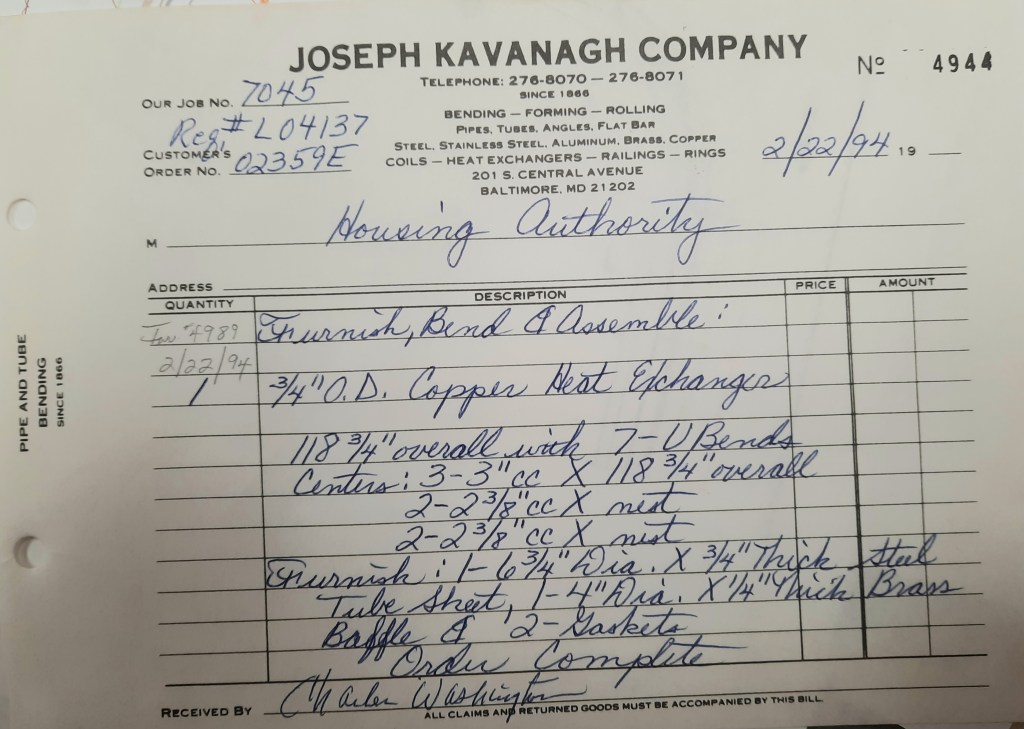 JOSEPH KAVANAGH COMPANY
Nº 4944
TELEPHONE: 276-8070 — 276-8071
SINCE 1866
OUR JOB NO. 7045
BENDING — FORMING — ROLLING
PIPES, TUBES, ANGLES, FLAT BAR
Req# L04137
STEEL, STAINLESS STEEL, ALUMINUM, BRASS, COPPER
CUSTOMER'S
ORDER NO. 02359E
COILS — HEAT EXCHANGERS — RAILINGS — RINGS
2/22/94 19
201 S. CENTRAL AVENUE
BALTIMORE, MD 21202
M Housing Authority
ADDRESS
QUANTITY DESCRIPTION PRICE AMOUNT
Inv #4989 Furnish, Bend & Assemble:
2/22/94
1 3/4" O.D. Copper Heat Exchanger
118 3/4" overall with 7-U Bends
Centers: 3-3" cc X 118 3/4" overall
2-2 3/8" cc X nest
2-2 3/8" cc X nest
Furnish: 1-6 3/4" Dia. X 3/4" Thick Steel
Tube Sheet, 1-4" Dia. X 1/4" Thick Brass
Baffle & 2-Gaskets
Order Complete
RECEIVED BY Charles Washington
ALL CLAIMS AND RETURNED GOODS MUST BE ACCOMPANIED BY THIS BILL.
PIPE AND TUBE
BENDING
SINCE 1866